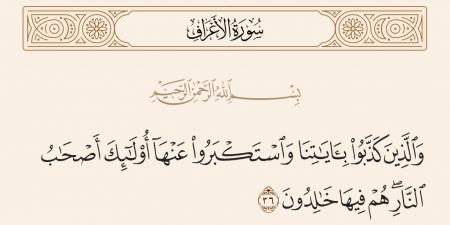 سُورَةُ الأَعْرَافِ
بِسْمِ اللَّهِ الرَّحْمَٰنِ الرَّحِيمِ
وَالَّذِينَ كَذَّبُوا۟ بِـَٔايَـٰتِنَا وَٱسْتَكْبَرُوا۟ عَنْهَآ أُو۟لَـٰٓئِكَ أَصْحَـٰبُ
ٱلنَّارِ ۖ هُمْ فِيهَا خَـٰلِدُونَ ٣٦